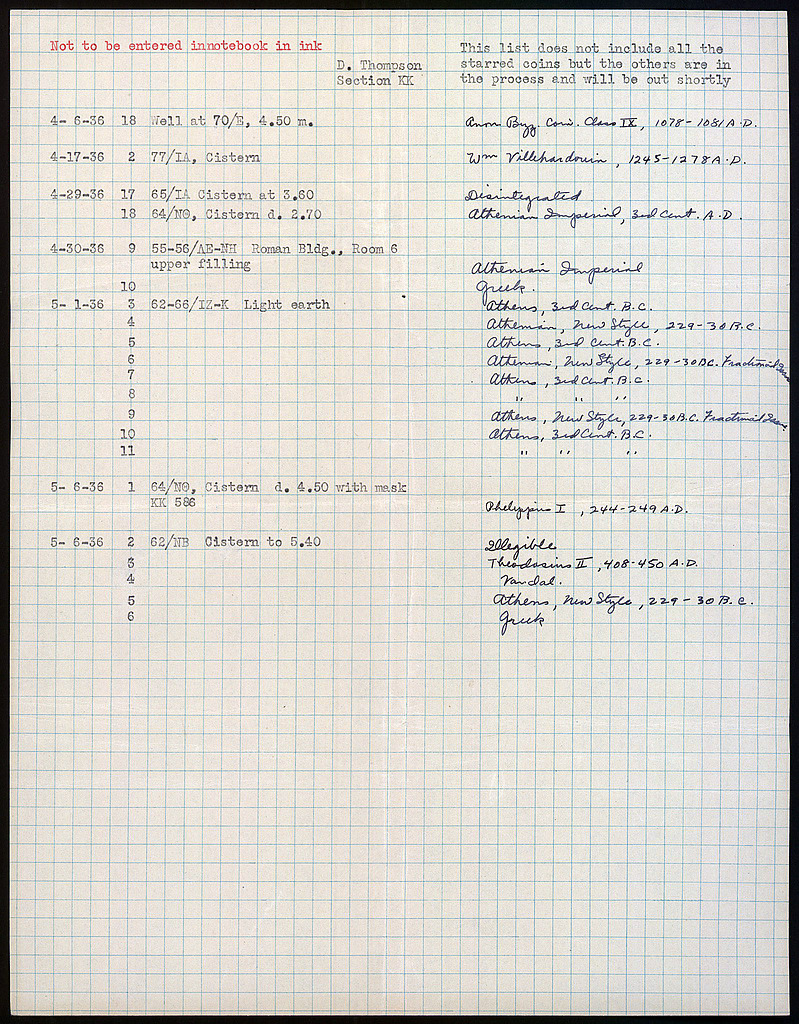 Not to be entered innotebook in ink
D. Thompson
Section KK
This list does not include all the
starred coins but the others are in
the process and will be out shortly
4- 6-36 18 Well at 70/E, 4.50 m. Anon Byz. Coin. Class IX, 1078-1081 A.D.
4-17-36 2 77/IA, Cistern Wm Villehardouin, 1245-1278 A.D.
4-29-36 17 65/IA Cistern at 3.60 Disintegrated
18 64/NΘ, Cistern d. 2.70 Athenian Imperial, 3rd Cent. A.D.
4-30-36 9 55-56/ΛE-NH Roman Bldg., Room 6
upper filling Athenian Imperial
10 Greek.
5- 1-36 3 62-66/IZ-K Light earth Athens, 3rd Cent. B.C.
4 Athenian, New Style, 229-30 B.C.
5 Athens, 3rd Cent. B.C.
6 Athenian, New Style, 229-30 B.C. Fractional Issue
7 Athens, 3rd Cent. B.C.
8 " " "
9 Athens, New Style, 229-30 B.C. Fractional Issue
10 Athens, 3rd Cent. B.C.
11 " " "
5- 6-36 1 64/NΘ, Cistern d. 4.50 with mask
KK 586 Philippus I, 244-249 A.D.
5- 6-36 2 62/NB Cistern to 5.40 Illegible
3 Theodosius II, 408-450 A.D.
4 Vandal.
5 Athens, New Style, 229-30 B.C.
6 Greek